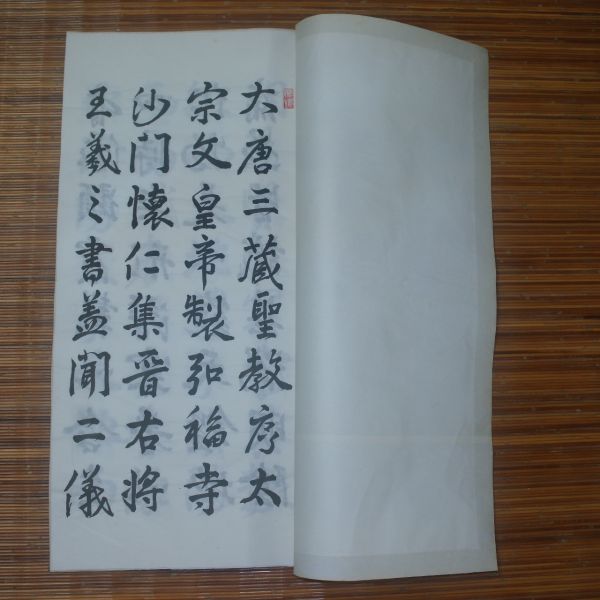 大唐三藏聖教序太
宗文皇帝製弘福寺
沙门懷仁集晋右将
王羲之書盖聞二儀